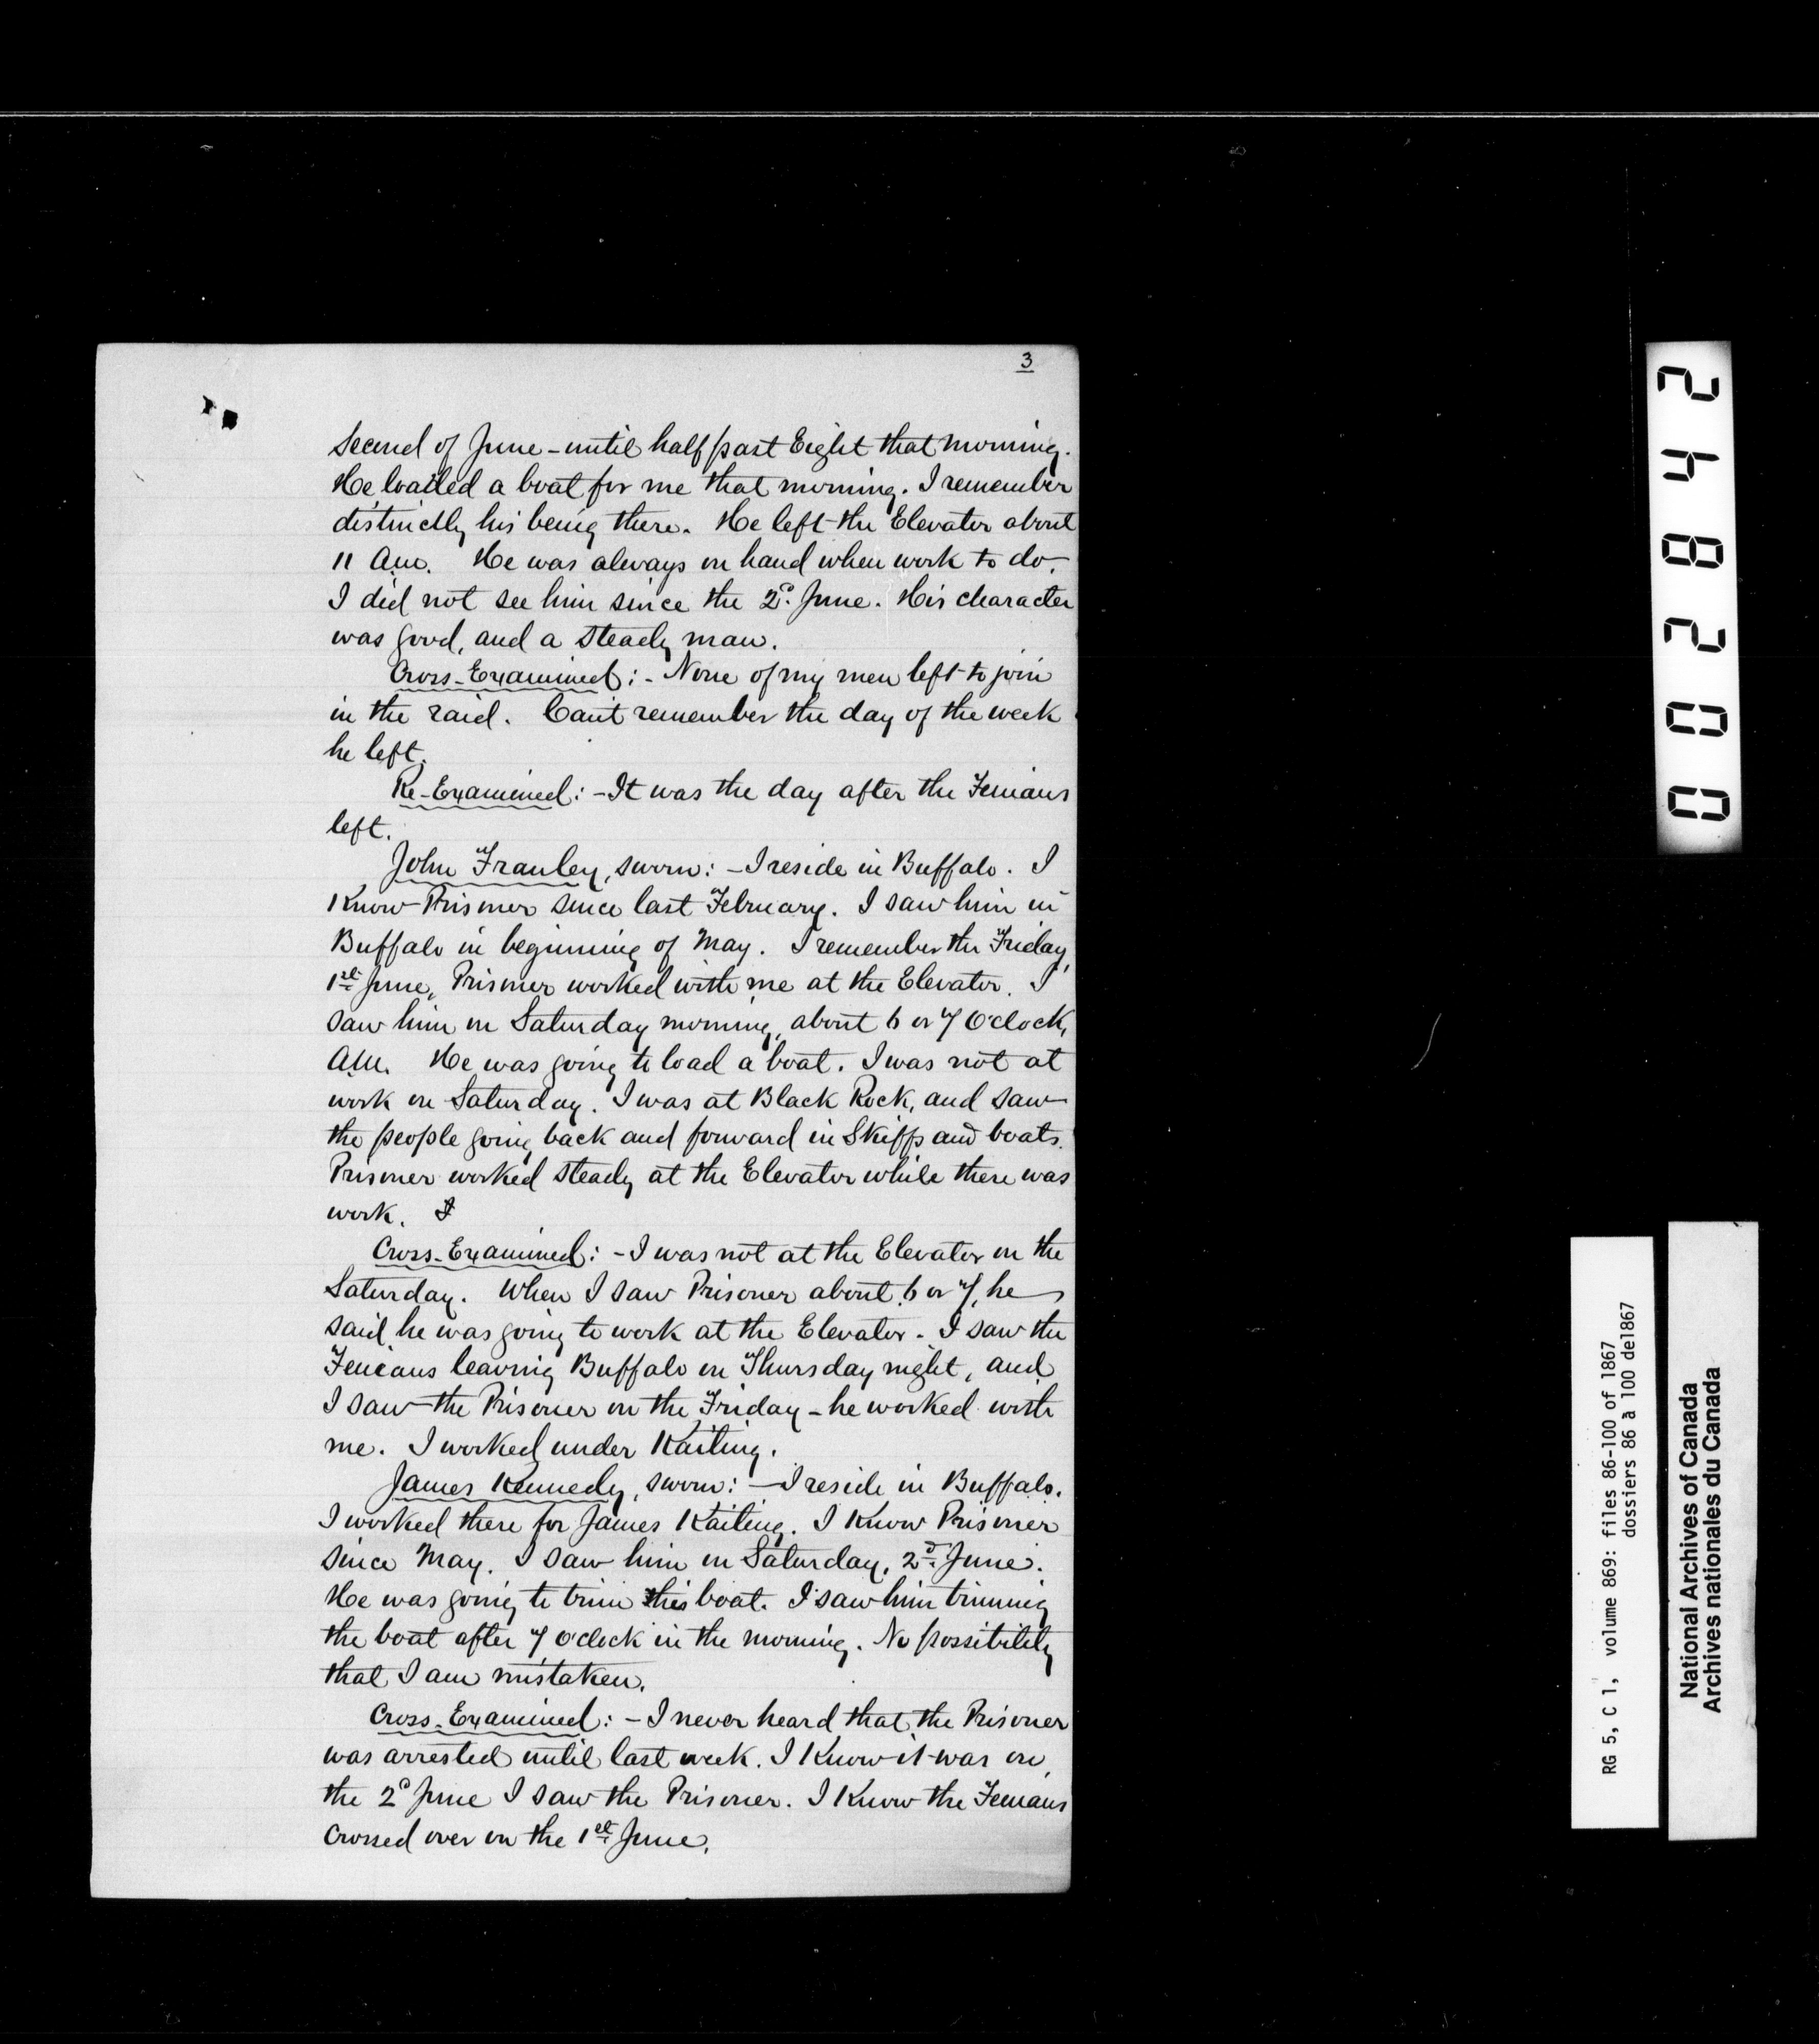 3
second of June - until half past Eight that morning.
He loaded a boat for me that morning. I remember
distinctly his being there. He left the Elevator about
11 A.M. He was always on hand when work to do.
I did not see him since the 2d. June. His character
was good, and a steady man.
Cross-Examined: - None of my men left to join
in the raid. Can't remember the day of the week
he left.
Re-Examined: - It was the day after the Fenians
left.
John Franley, sworn: - I reside in Buffalo. I
Know Prisoner since last February. I saw him in
Buffalo in beginning of May. I remember the Friday,
1st June, Prisoner worked with me at the Elevator. I
saw him on Saturday morning, about 6 or 7 O'clock,
A.M. He was going to load a boat. I was not at
work on Saturday. I was at Black Rock, and saw
the people going back and forward in Skiffs and boats.
Prisoner worked steady at the Elevator while there was
work. I
Cross-Examined: - I was not at the Elevator on the
Saturday. When I saw Prisoner about 6 or 7, he
said he was going to work at the Elevator. I saw the
Fenians leaving Buffalo on Thursday night, and
I saw the Prisoner on the Friday - he worked with
me. I worked under Kaiting.
James Kennedy, sworn: - I reside in Buffalo.
I worked there for James Kaiting. I Know Prisoner
since May. I saw him on Saturday, 2d. June.
He was going to trim this boat. I saw him trimming
the boat after 7 o'clock in the morning. No possibility
that I am mistaken.
Cross-Examined: - I never heard that the Prisoner
was arrested until last week. I Know it was on,
the 2d June I saw the Prisoner. I Know the Fenians
crossed over on the 1st June.
248200
RG 5, C 1, volume 869: files 86-100 of 1867
dossiers 86 à 100 de1867
National Archives of Canada
Archives nationales du Canada